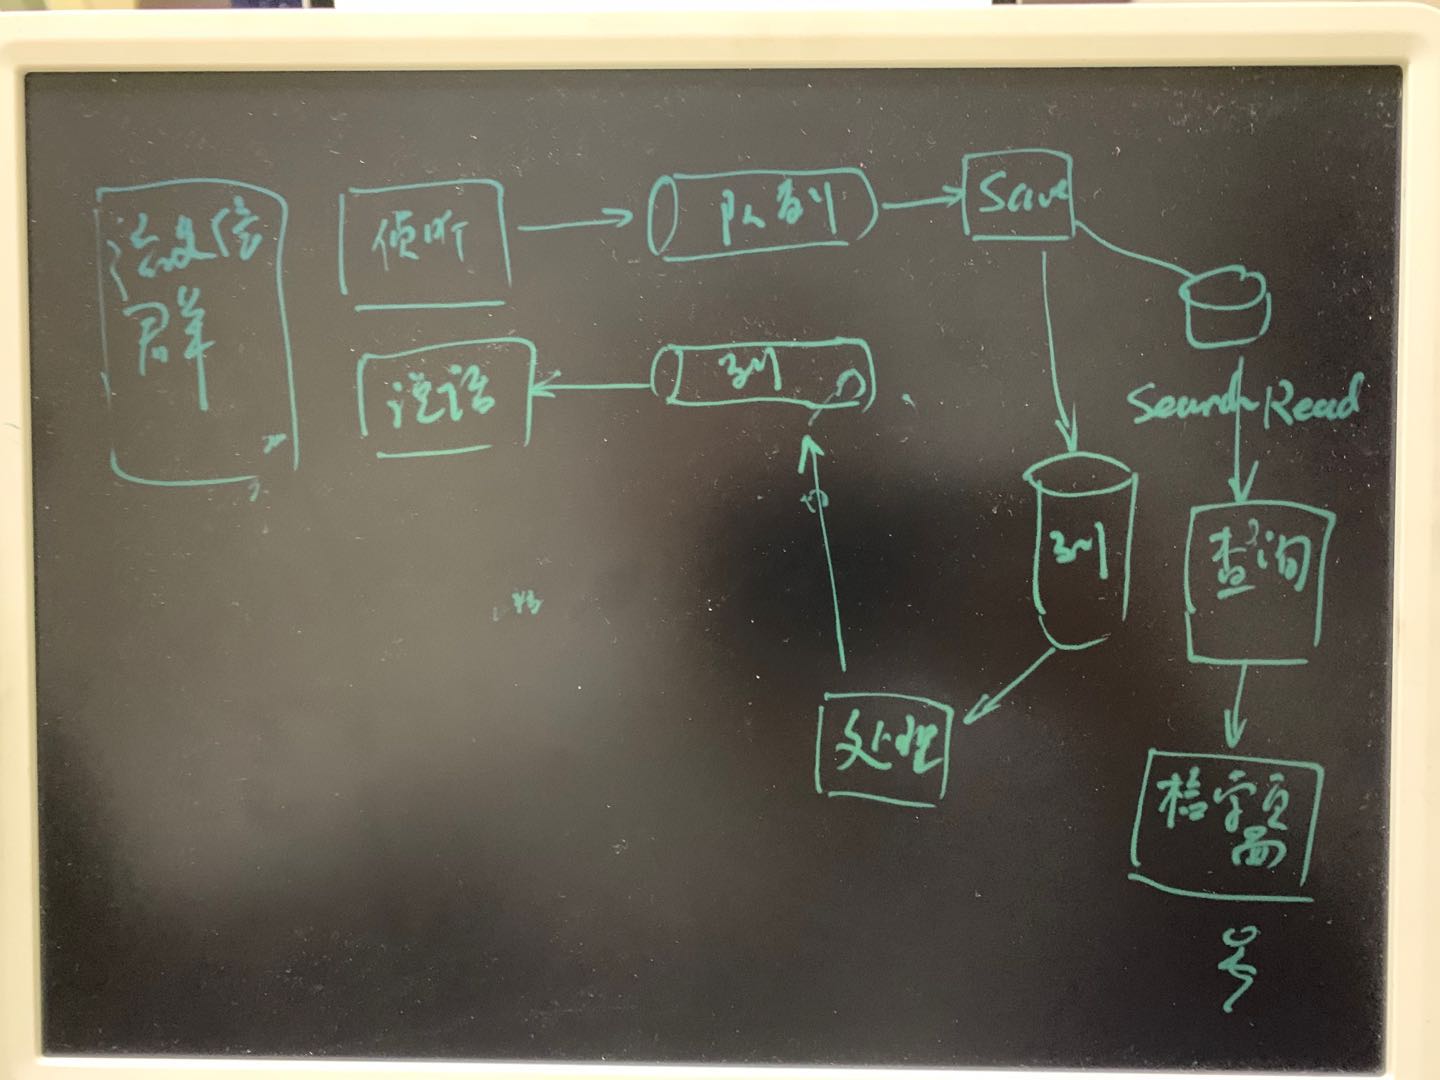 微信
群
侦听
队列
Save
说话
列
Search Read
列
查询
处理
检索页
面